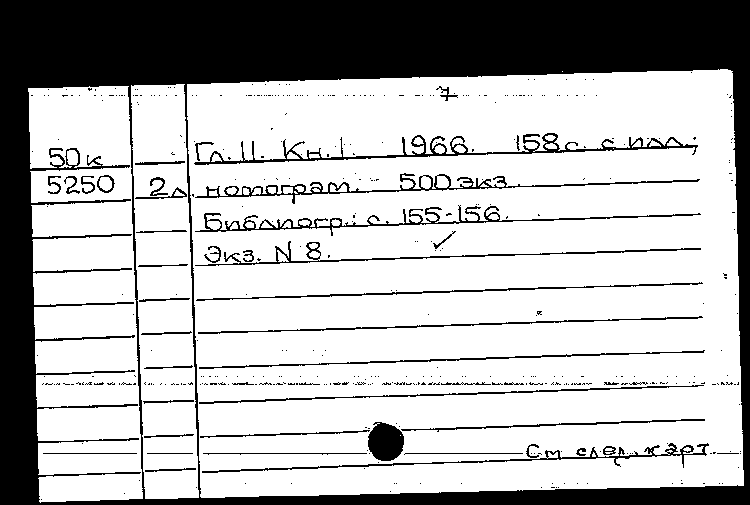 7
50к Гл. II. Кн. I. 1966. 158 с. с илл.;
5250 2л. номограм. - 500 экз.
Библиогр.: с. 155-156.
Экз. N 8. ✓
См след. карт